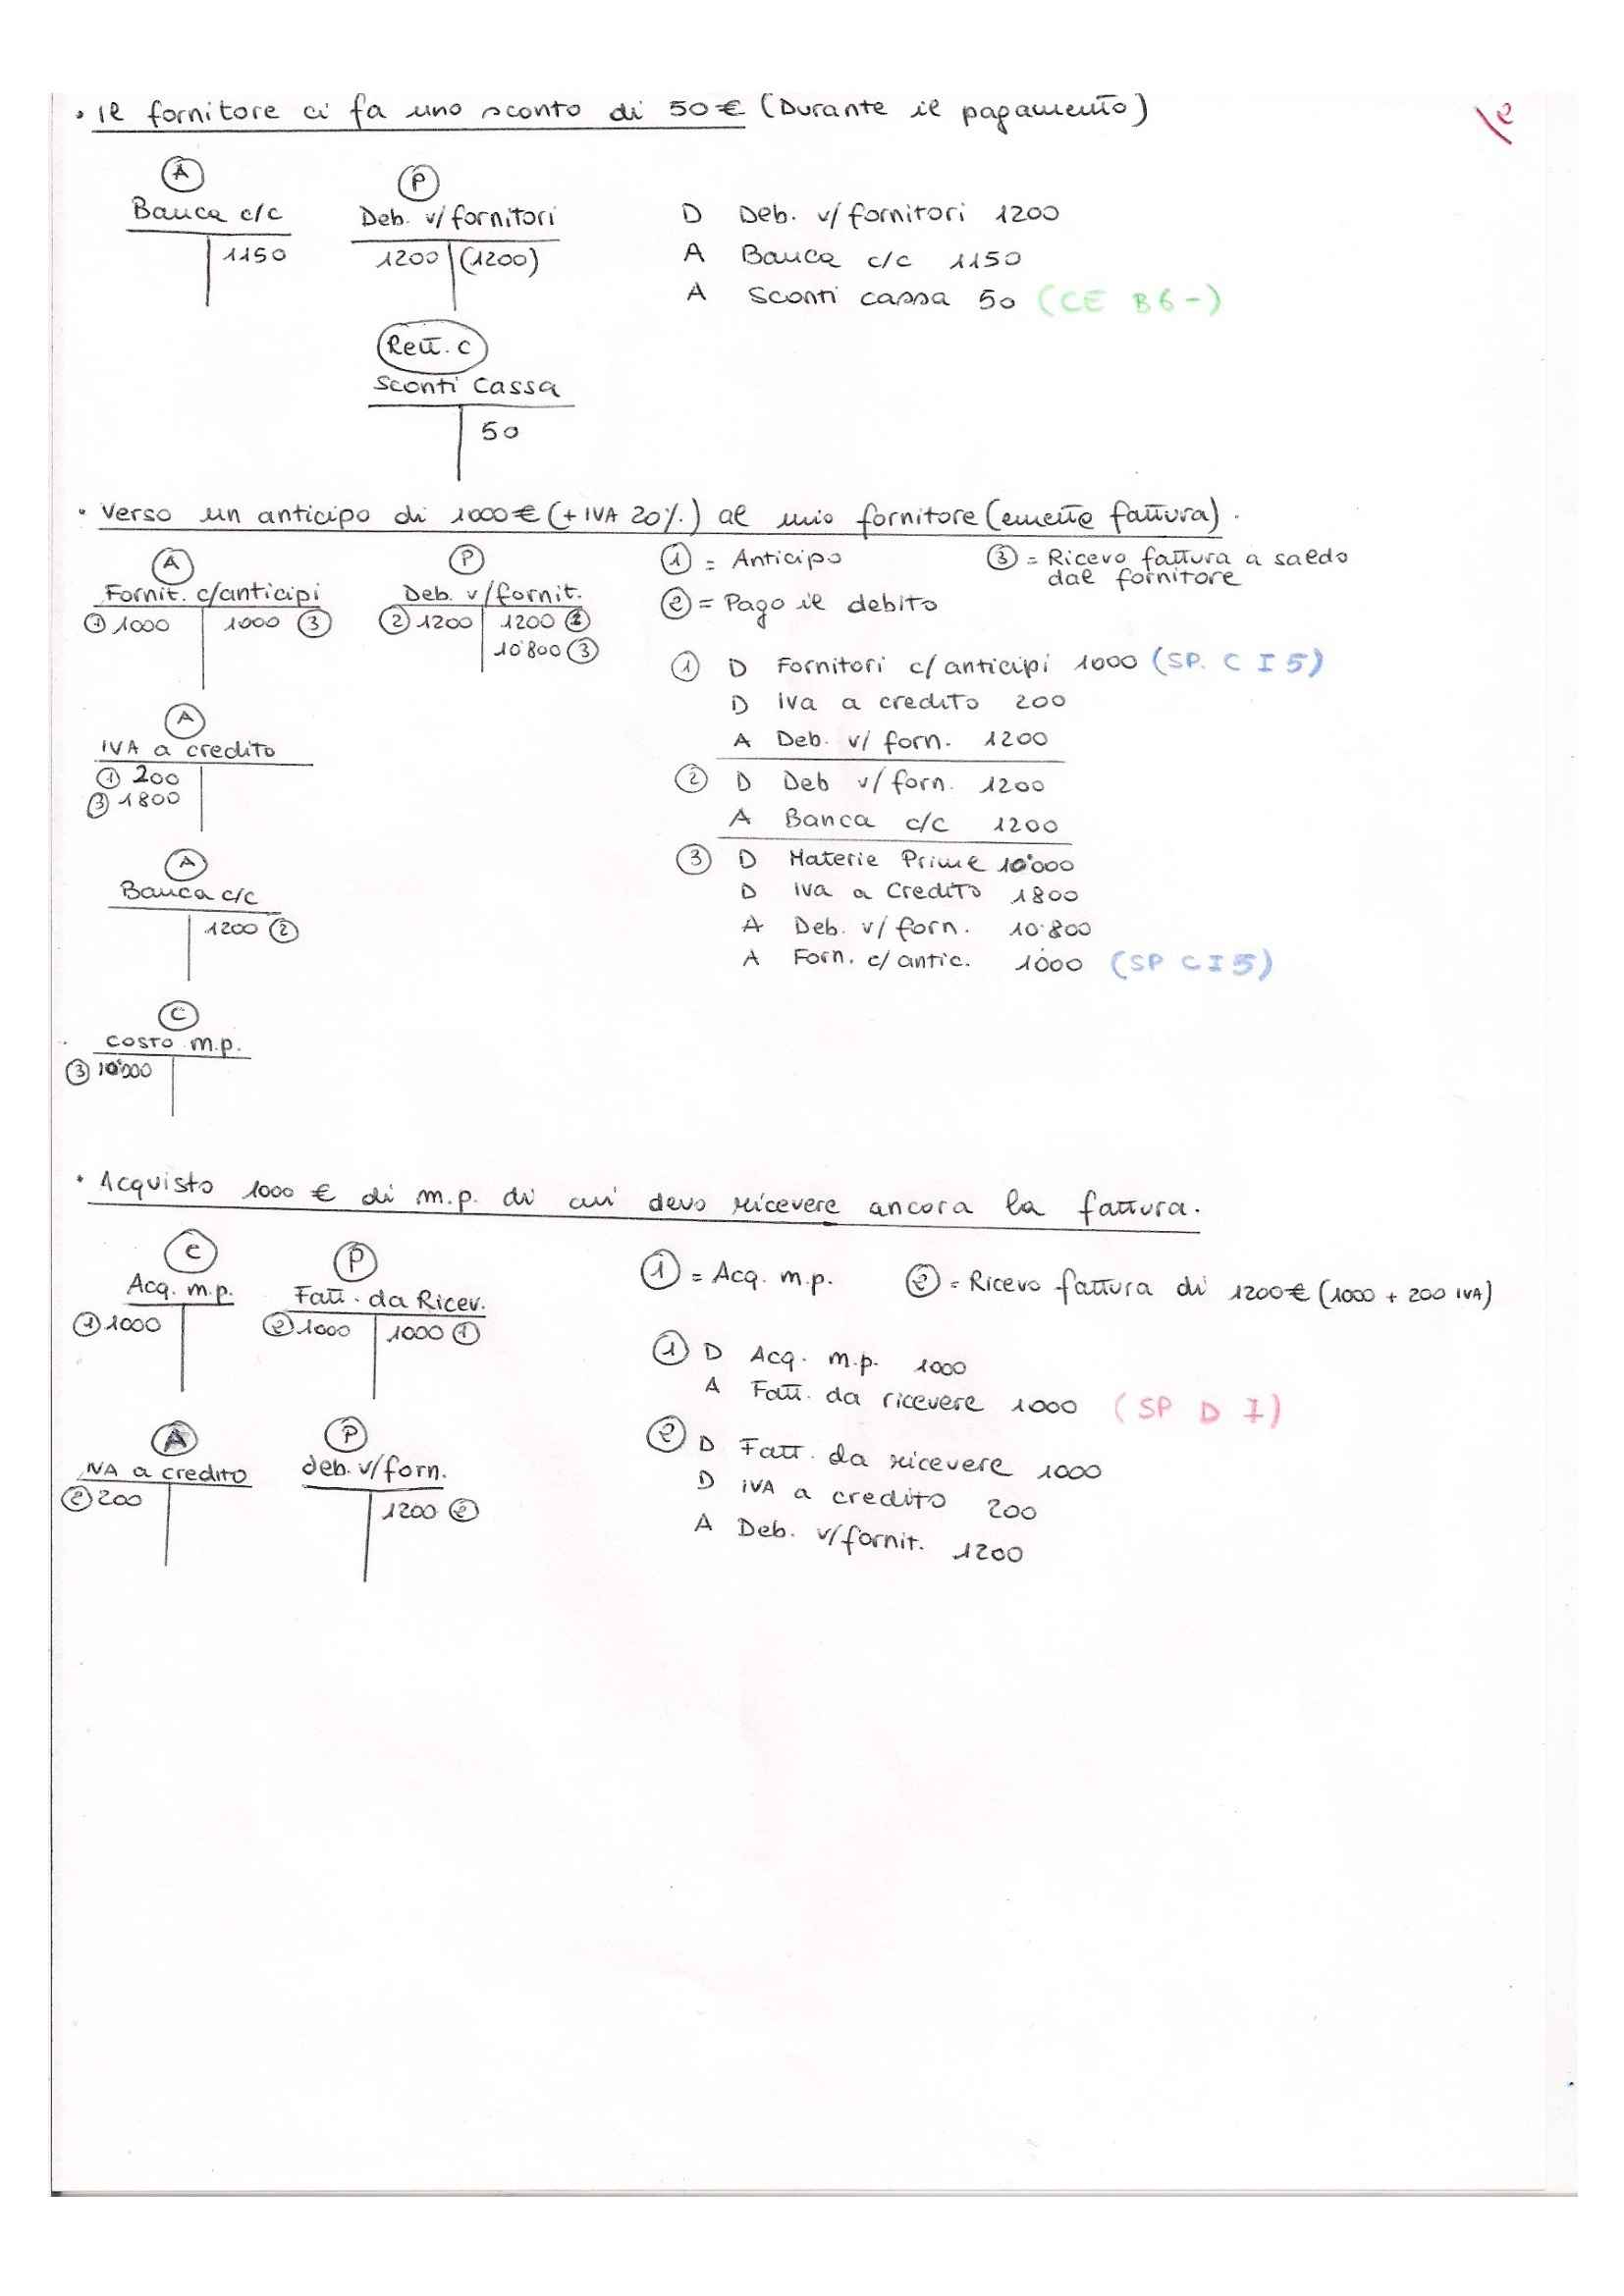 • Il fornitore ci fa uno sconto di 50€ (Durante il pagamento)
2
A
Banca c/c
1150
P
Deb. v/fornitori
1200 (1200)
Rett. C
Sconti Cassa
50
D Deb. v/fornitori 1200
A Banca c/c 1150
A Sconti cassa 50 (CE B6-)
• Verso un anticipo di 1000€ (+ IVA 20%) al mio fornitore (emette fattura).
A
Fornit. c/anticipi
① 1000 1000 ③
P
Deb. v/fornit.
② 1200 1200 ①
10'800 ③
A
IVA a credito
① 200
③ 1800
A
Banca c/c
1200 ②
C
Costo m.p.
③ 10'000
① = Anticipo
② = Pago il debito
③ = Ricevo fattura a saldo
dal fornitore
① D Fornitori c/anticipi 1000 (SP. C I 5)
D iva a credito 200
A Deb. v/ forn. 1200
② D Deb v/forn. 1200
A Banca c/c 1200
③ D Materie Prime 10'000
D iva a Credito 1800
A Deb. v/ forn. 10'800
A Forn. c/antic. 1000 (SP C I 5)
• Acquisto 1000 € di m.p. di cui devo ricevere ancora la fattura.
C
Acq. m.p.
① 1000
P
Fatt. da Ricev.
② 1000 1000 ①
A
IVA a credito
② 200
P
deb. v/forn.
1200 ②
① = Acq. m.p. ② = Ricevo fattura di 1200€ (1000 + 200 IVA)
① D Acq. m.p. 1000
A Fatt. da ricevere 1000 (SP D 7)
② D Fatt. da ricevere 1000
D IVA a credito 200
A Deb. v/fornit. 1200